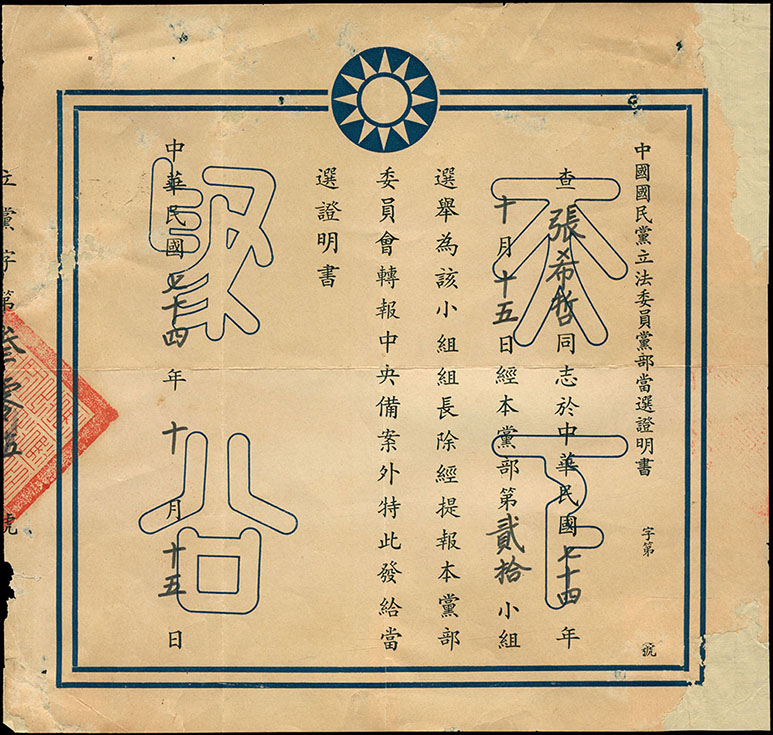 中國國民黨立法委員黨部當選證明書 字第 號
查張希哲同志於中華民國七十四年
十月十五日經本黨部第貳拾小組
選舉為該小組組長除經提報本黨部
委員會轉報中央備案外特此發給當
選證明書
中華民國七十四年十月十五日
立黨字第叁零伍號
天下為公